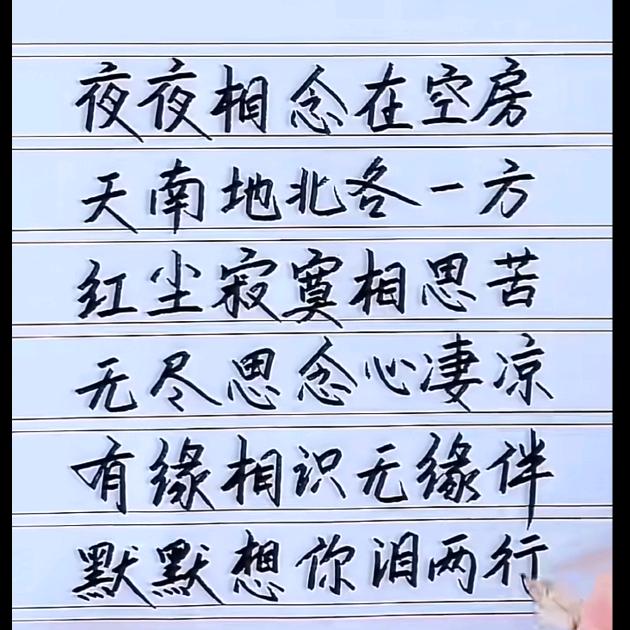 夜夜相念在空房
天南地北各一方
红尘寂寞相思苦
无尽思念心凄凉
有缘相识无缘伴
默默想你泪两行